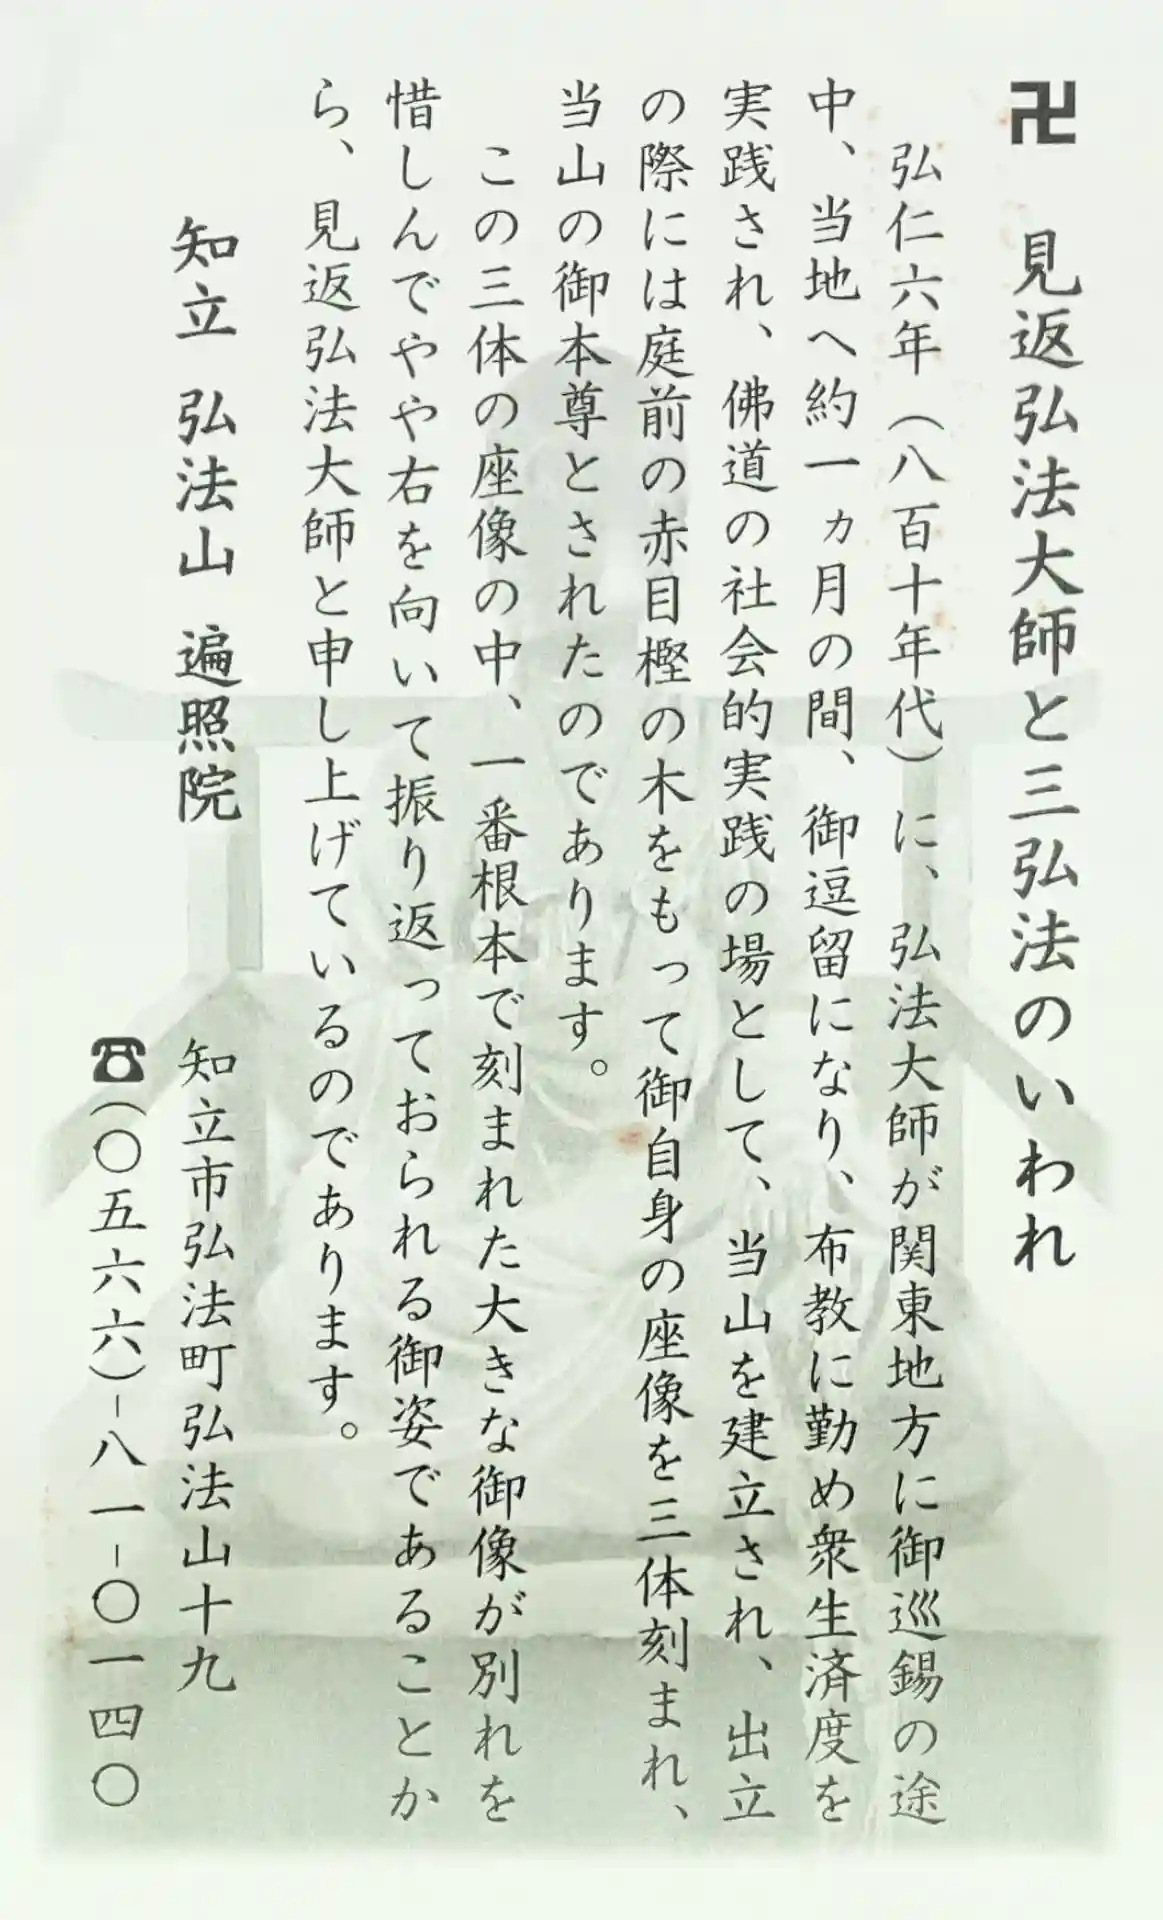 卍 見返弘法大師と三弘法のいわれ
弘仁六年(八百十年代)に、弘法大師が関東地方に御巡錫の途
中、当地へ約一ヵ月の間、御逗留になり、布教に勤め衆生済度を
実践され、佛道の社会的実践の場として、当山を建立され、出立
の際には庭前の赤目樫の木をもって御自身の座像を三体刻まれ、
当山の御本尊とされたのであります。
この三体の座像の中、一番根本で刻まれた大きな御像が別れを
惜しんでやや右を向いて振り返っておられる御姿であることか
ら、見返弘法大師と申し上げているのであります。
知立 弘法山 遍照院
知立市弘法町弘法山十九
☎(〇五六六)-八一-〇一四〇